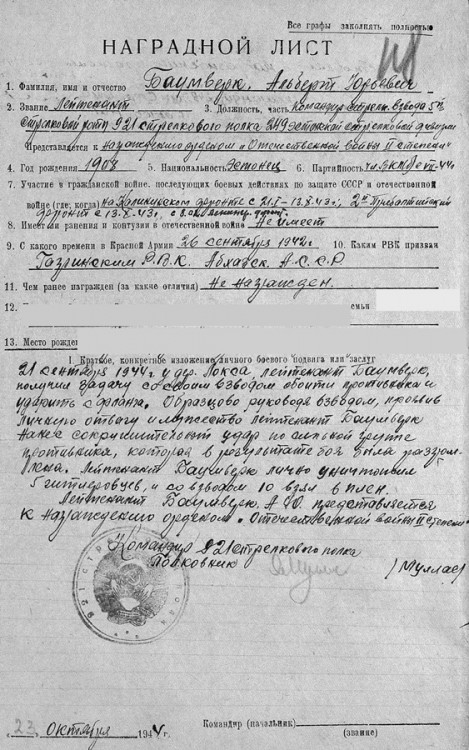 Все графы заполнять полностью
НАГРАДНОЙ ЛИСТ
1. Фамилия, имя и отчество Баумверк Альберт Юрьевич
2. Звание Лейтенант 3. Должность, часть командир стрелк. взвода 5й
стрелковой роты 921 стрелкового полка 249 эстонской стрелковой дивизии
Представляется к награждению орденом „Отечественной войны II степени“
4. Год рождения 1908 5. Национальность эстонец 6. Партийность чл. ВКП(б) с VII-44г
7. Участие в гражданской войне, последующих боевых действиях по защите СССР и отечественной
войне (где, когда) на Калининском фронте с 13.X.43г; 2й Прибалтийский
фронт с 13.X.43г.
8. Имеет ли ранения и контузии в отечественной войне Не имеет
9. С какого времени в Красной Армии 26 сентября 1942г 10. Каким РВК призван
Р.В.К. Абхазск. А.С.С.Р
11. Чем ранее награжден (за какие отличия) Не награжден.
12. семьи
13. Место рожде
I. Краткое, конкретное изложение личного боевого подвига или заслуг
21 сентября 1944г у дер. Локса лейтенант Баумверк,
получил задачу со своим взводом обойти противника и
ударить с фланга. Образцово руководя взводом, проявив
личную отвагу и мужество лейтенант Баумверк
нанес сокрушительный удар по сильной группе
противника, которая в результате боя была разгром-
лена. Лейтенант Баумверк лично уничтожил
5 гитлеровцев, и со взводом 10 взял в плен.
Лейтенант Баумверк А.Ю. представляется
к награждению орденом „Отечественной войны II степени“
Командир 921 стрелкового полка
Полковник (Муллас)
23 октября 1944г. Командир (начальник)
(звание)